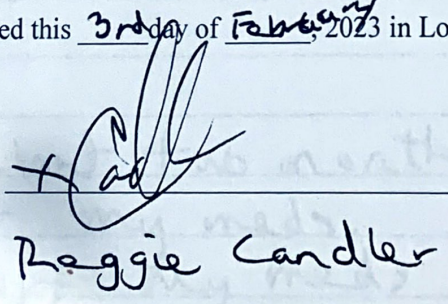 ed this 3rd day of February, 2023 in Lo
x
Reggie Candler